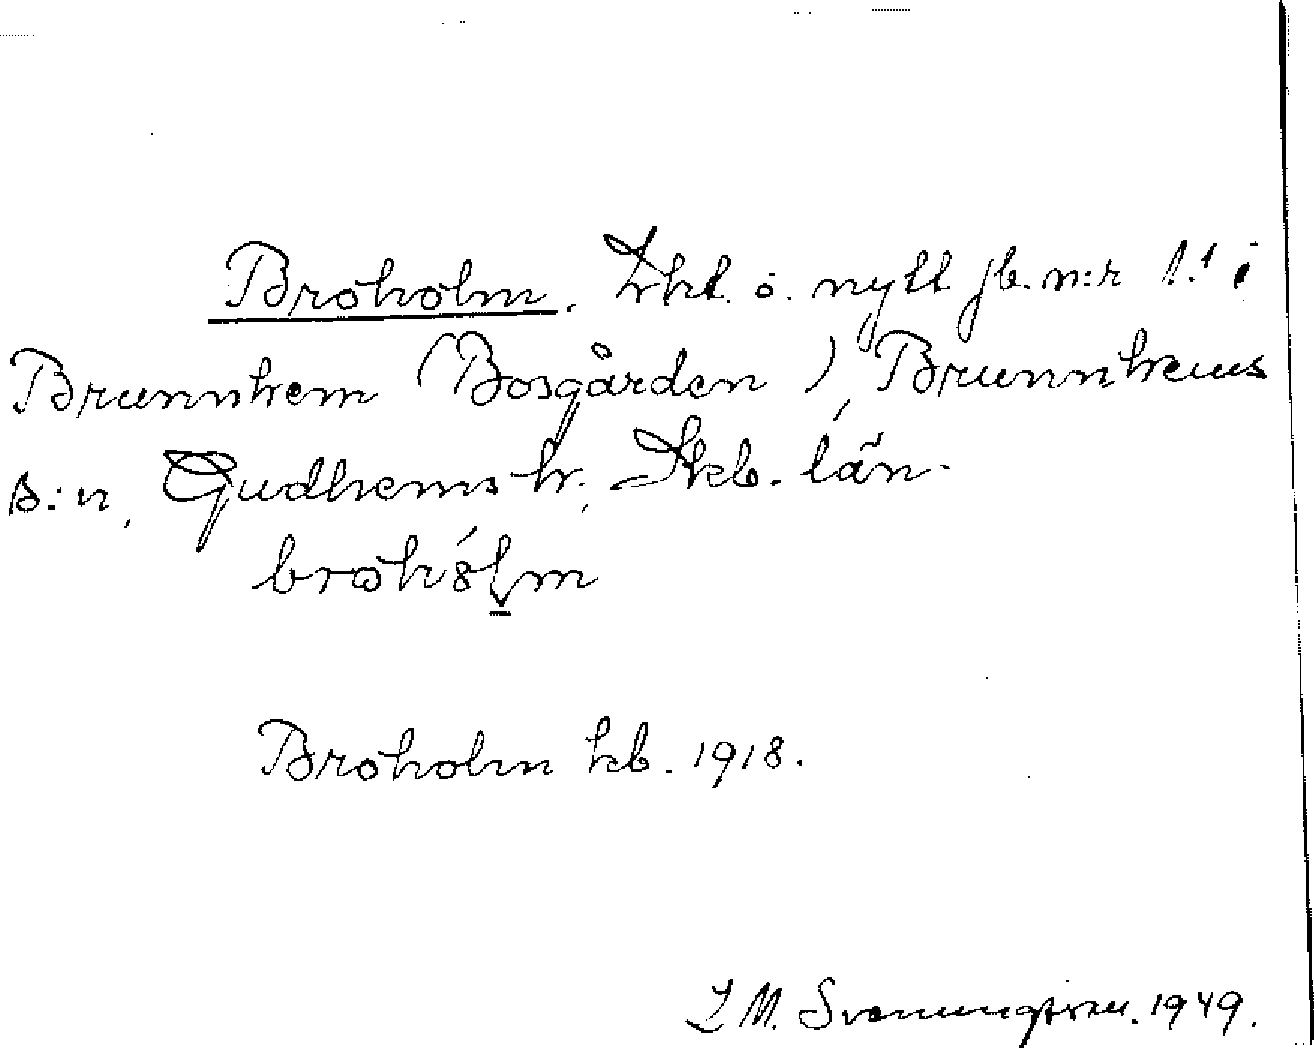 Broholm. Lht. o. nytt jb. n:r 1:1 i
Brunnhem (Bosgården), Brunnhems
s:n, Gudhems hr, Skb. län.
brohólm
Broholm kb. 1918.
L M. Svenungsson. 1949.